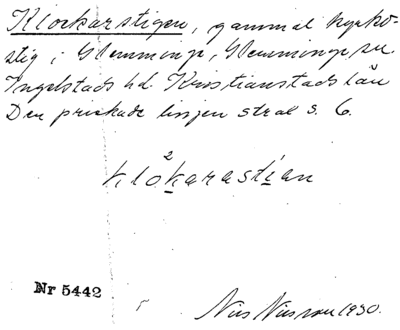 Klockarstigen, gammal kyrko-
stig i Glemminge, Glemminge sn
Ingelstads hd. Kristianstads län
Den prickade linjen strax s. 6.
2
klokarastian
Nr 5442
Nils Nilsson 1930.